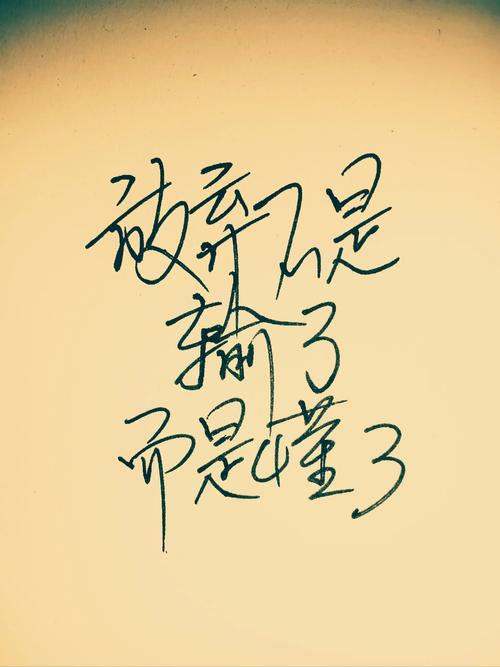 放弃不是
输了
而是懂了